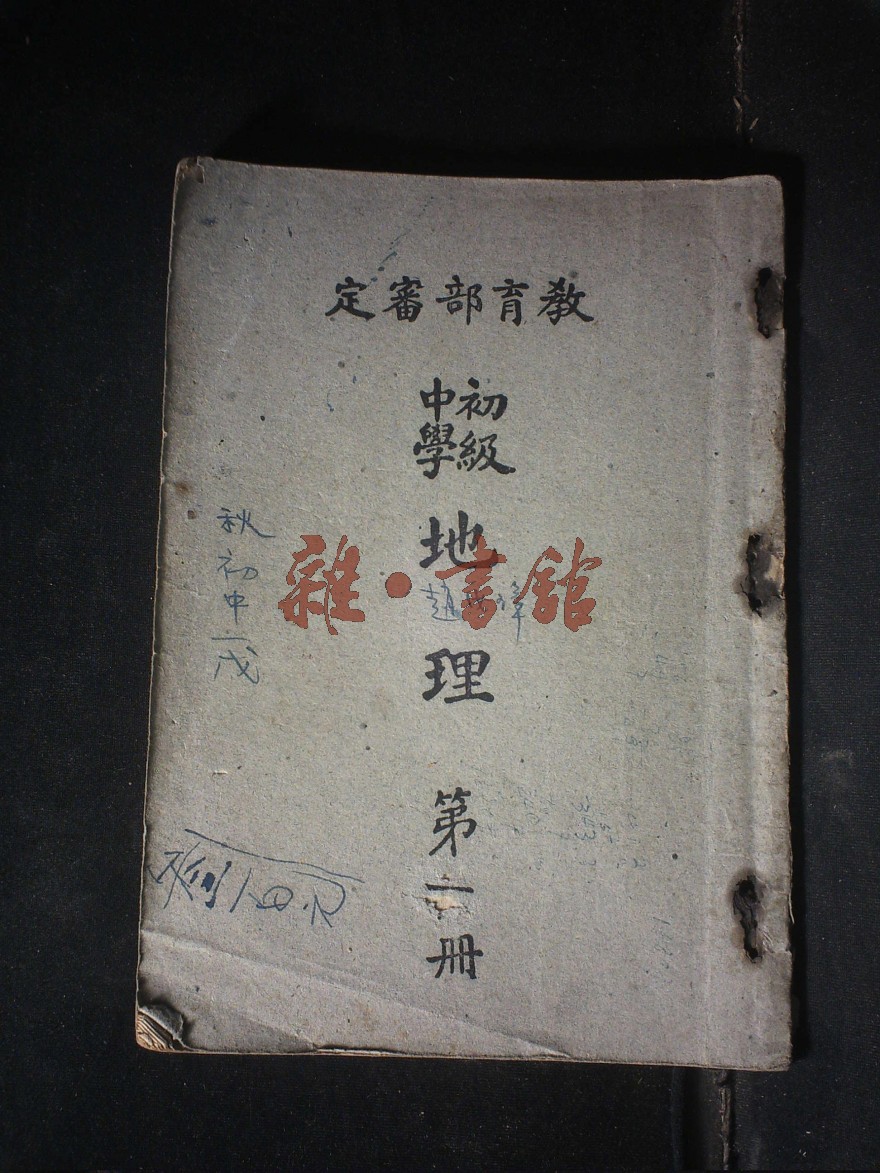 教育部審定
初級
中學
地理
第二冊
秋初中一戊
趙
雜·書館